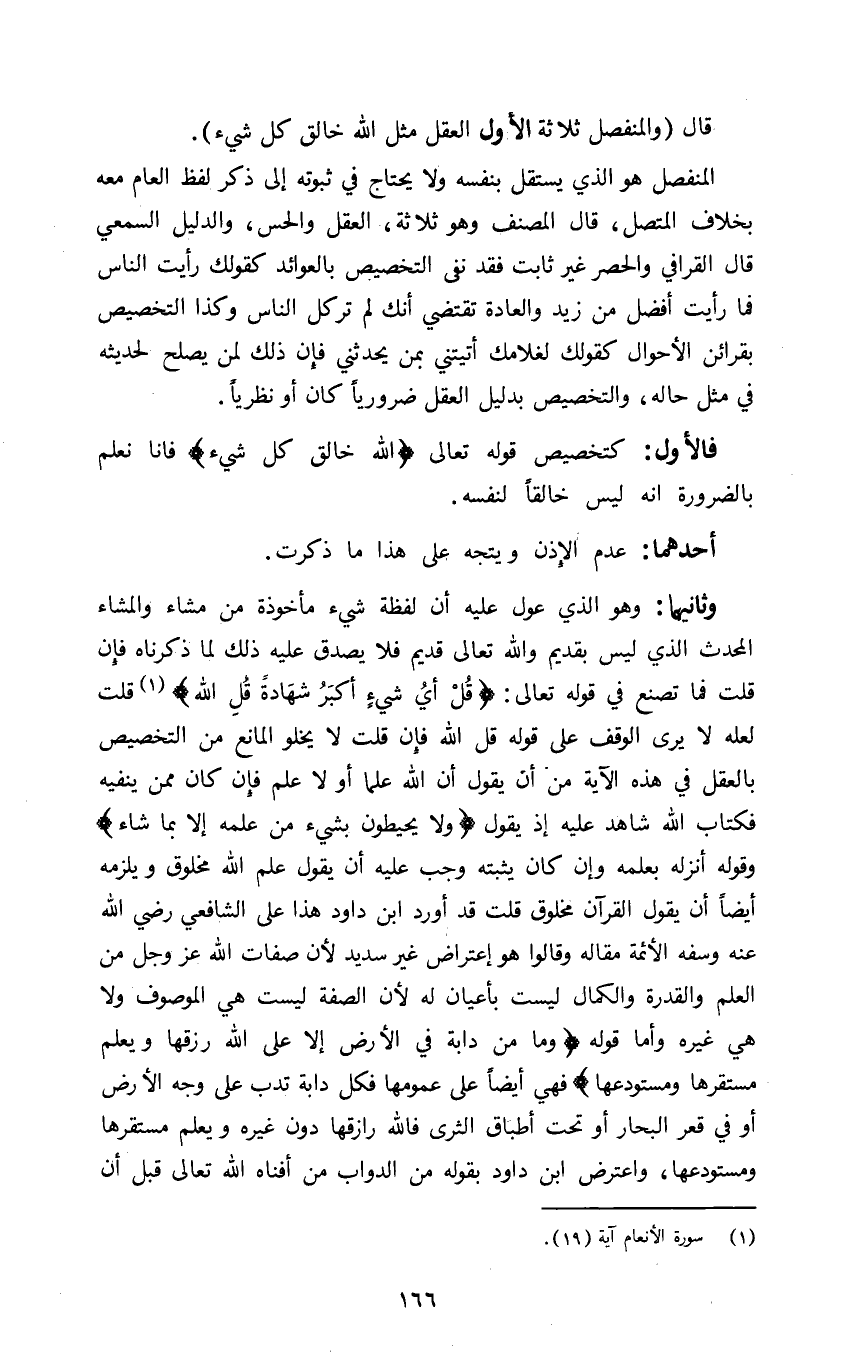 قال (والمنفصل ثلاثة الأول العقل مثل الله خالق كل شيء).
المنفصل هو الذي يستقل بنفسه ولا يحتاج في ثبوته إلى ذكر لفظ العام معه
بخلاف المتصل، قال المصنف وهو ثلاثة، العقل والحس، والدليل السمعي
قال القرافي والحصر غير ثابت فقد نفى التخصيص بالعوائد كقولك رأيت الناس
فما رأيت أفضل من زيد والعادة تقتضي أنك لم تركل الناس وكذا التخصيص
بقرائن الأحوال كقولك لغلامك أتيتني بمن يحدثني فإن ذلك لمن يصلح لحديثه
في مثل حاله، والتخصيص بدليل العقل ضرورياً كان أو نظرياً.
فالأول: كتخصيص قوله تعالى ﴿الله خالق كل شيء﴾ فانا نعلم
بالضرورة انه ليس خالقاً لنفسه.
أحدهما: عدم الإذن ويتجه على هذا ما ذكرت.
وثانيها: وهو الذي عول عليه أن لفظة شيء مأخوذة من مشاء والمشاء
المحدث الذي ليس بقديم والله تعالى قديم فلا يصدق عليه ذلك لما ذكرناه فإن
قلت فما تصنع في قوله تعالى: ﴿قُلْ أيُ شيءٍ أكبَرُ شهَادةً قُلِ الله﴾ (١) قلت
لعله لا يرى الوقف على قوله قل الله فإن قلت لا يخلو المانع من التخصيص
بالعقل في هذه الآية من أن يقول أن الله علما أو لا علم فإن كان ممن ينفيه
فكتاب الله شاهد عليه إذ يقول ﴿ولا يحيطون بشيء من علمه إلا بما شاء﴾
وقوله أنزله بعلمه وإن كان يثبته وجب عليه أن يقول علم الله مخلوق ويلزمه
أيضاً أن يقول القرآن مخلوق قلت قد أورد ابن داود هذا على الشافعي رضي الله
عنه وسفه الأئمة مقاله وقالوا هو إعتراض غير سديد لأن صفات الله عز وجل من
العلم والقدرة والكمال ليست بأعيان له لأن الصفة ليست هي الموصوف ولا
هي غيره وأما قوله ﴿وما من دابة في الأرض إلا على الله رزقها ويعلم
مستقرها ومستودعها﴾ فهي أيضاً على عمومها فكل دابة تدب على وجه الأرض
أو في قعر البحار أو تحت أطباق الثرى فالله رازقها دون غيره ويعلم مستقرها
ومستودعها، واعترض ابن داود بقوله من الدواب من أفناه الله تعالى قبل أن
(١) سورة الأنعام آية (١٩).
١٦٦